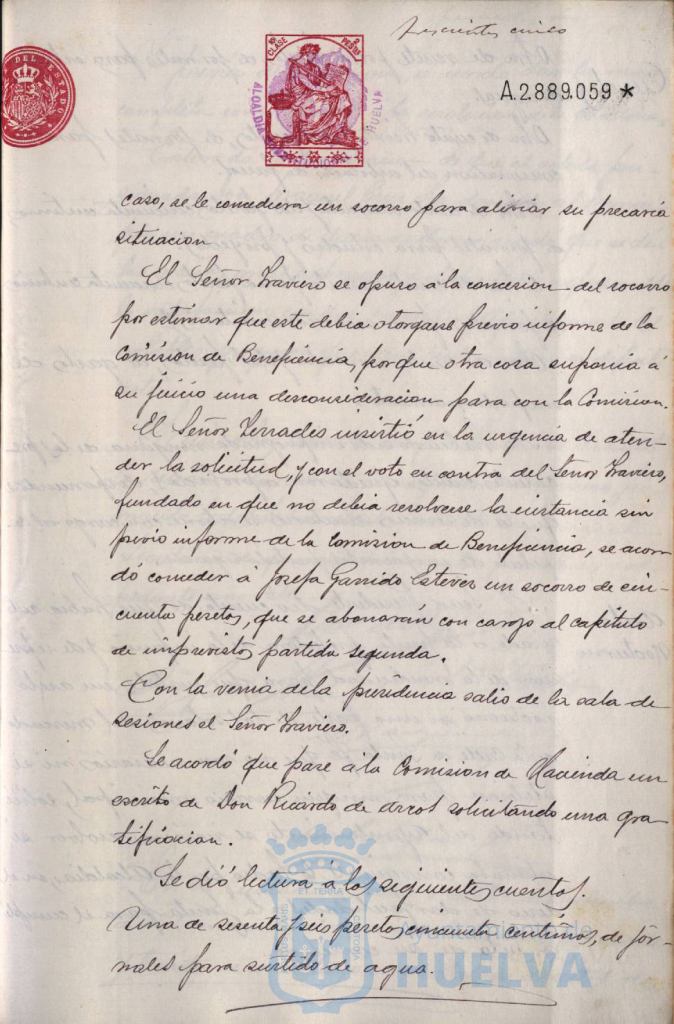 A.2.889.059 *
10ª CLASE
2 PESTAS
DEL ESTADO
ALCALDIA
HUELVA
caso, se le concediera un socorro para aliviar su precaria
situacion
El Señor Traviero se opuso á la concesion del socorro
por estimar que este debia otorgarse previo informe de la
Comision de Beneficencia, porque otra cosa suponia á
su juicio una desconsideracion para con la Comision.
El Señor Terrades insistió en la urgencia de aten-
der la solicitud, y con el voto en contra del Señor Traviero,
fundado en que no debia resolverse la instancia sin
previo informe de la Comision de Beneficencia, se acor
dó conceder á Josefa Garrido Estevez un socorro de cin-
cuenta pesetas, que se abonarán con cargo al capítulo
de imprevistos partida segunda.
Con la venia de la presidencia salio de la sala de
sesiones el Señor Traviero.
Se acordó que pase á la Comision de Hacienda un
escrito de Don Ricardo de Arcos solicitando una gra-
tificacion.
Se dió lectura á las siguientes cuentas.
Una de sesenta y seis pesetas cincuenta centimos, de jor-
nales para surtido de agua.
Ayuntamiento de
HUELVA